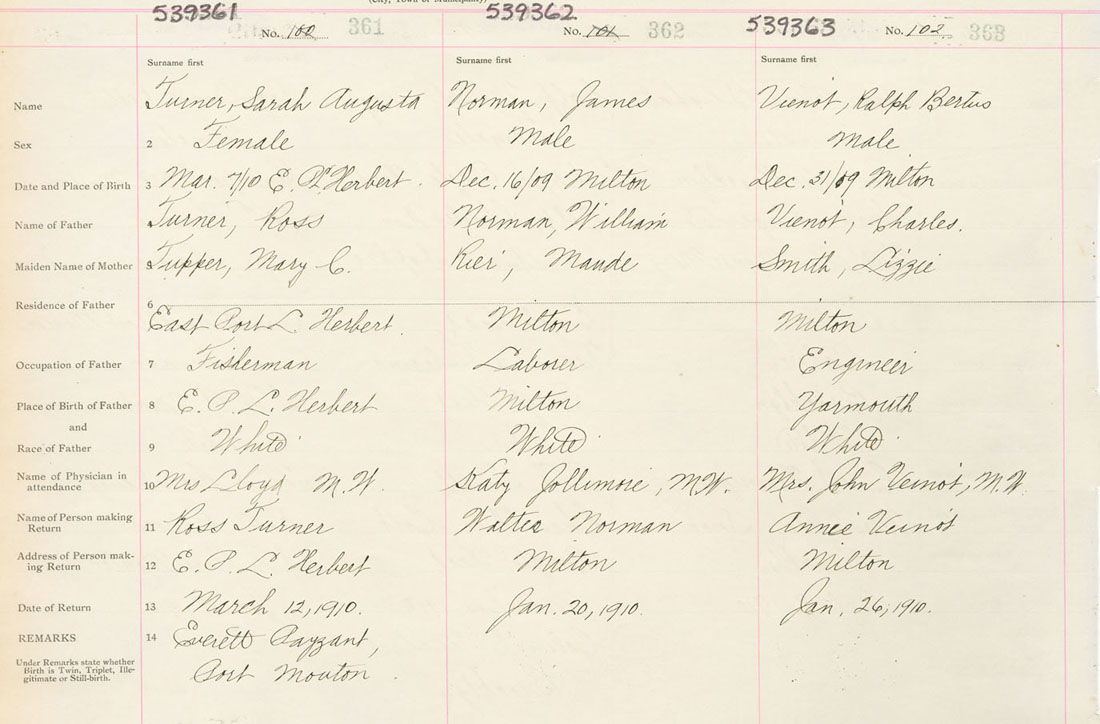 (City, Town or Municipality)
539361 539362 539363
No. 100 361 No. 101 362 No. 102 363
Surname first Surname first Surname first
Name Turner, Sarah Augusta Norman, James Vienot, Ralph Bertus
Sex 2 Female Male Male
Date and Place of Birth 3 Mar. 7/10 E. P. L. Herbert. Dec. 16/09 Milton Dec. 31/09 Milton
Name of Father Turner, Ross Norman, William Vienot, Charles.
Maiden Name of Mother Tupper, Mary C. Maude Smith, Lizzie
Residence of Father 6 East Port L. Herbert. Milton Milton
Occupation of Father 7 Fisherman Laborer Engineer
Place of Birth of Father 8 E. P. L. Herbert Milton Yarmouth
and
Race of Father 9 White White White
Name of Physician in attendance 10 Mrs Lloyd M.W. Katy Jollimore, M.W. Mrs. John Veinot, M.W.
Name of Person making Return 11 Ross Turner Walter Norman Annie Veinot
Address of Person mak-ing Return 12 E. P. L. Herbert Milton Milton
Date of Return 13 March 12, 1910. Jan. 20, 1910. Jan. 26, 1910.
REMARKS 14 Everett Payzant,
Port Mouton
Under Remarks state whether
Birth is Twin, Triplet, Ille-
gitimate or Still-birth.